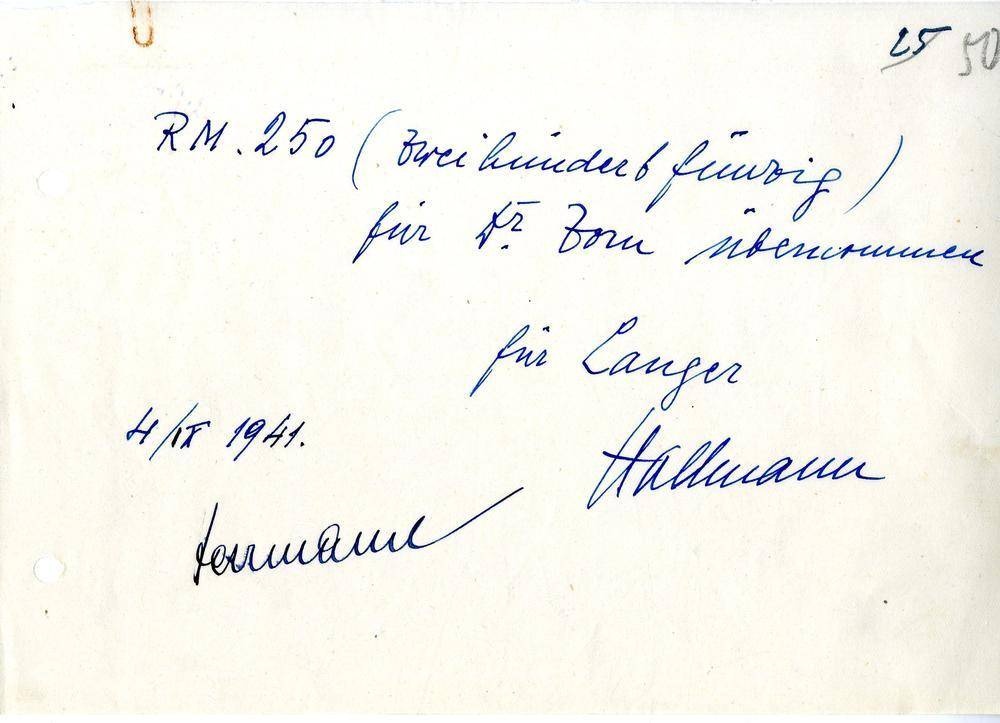 25 50
RM. 250 (Zweihundert fünzig)
für Dr. Zorn übernommen
für Langer
4/IX 1941.
Hallmann